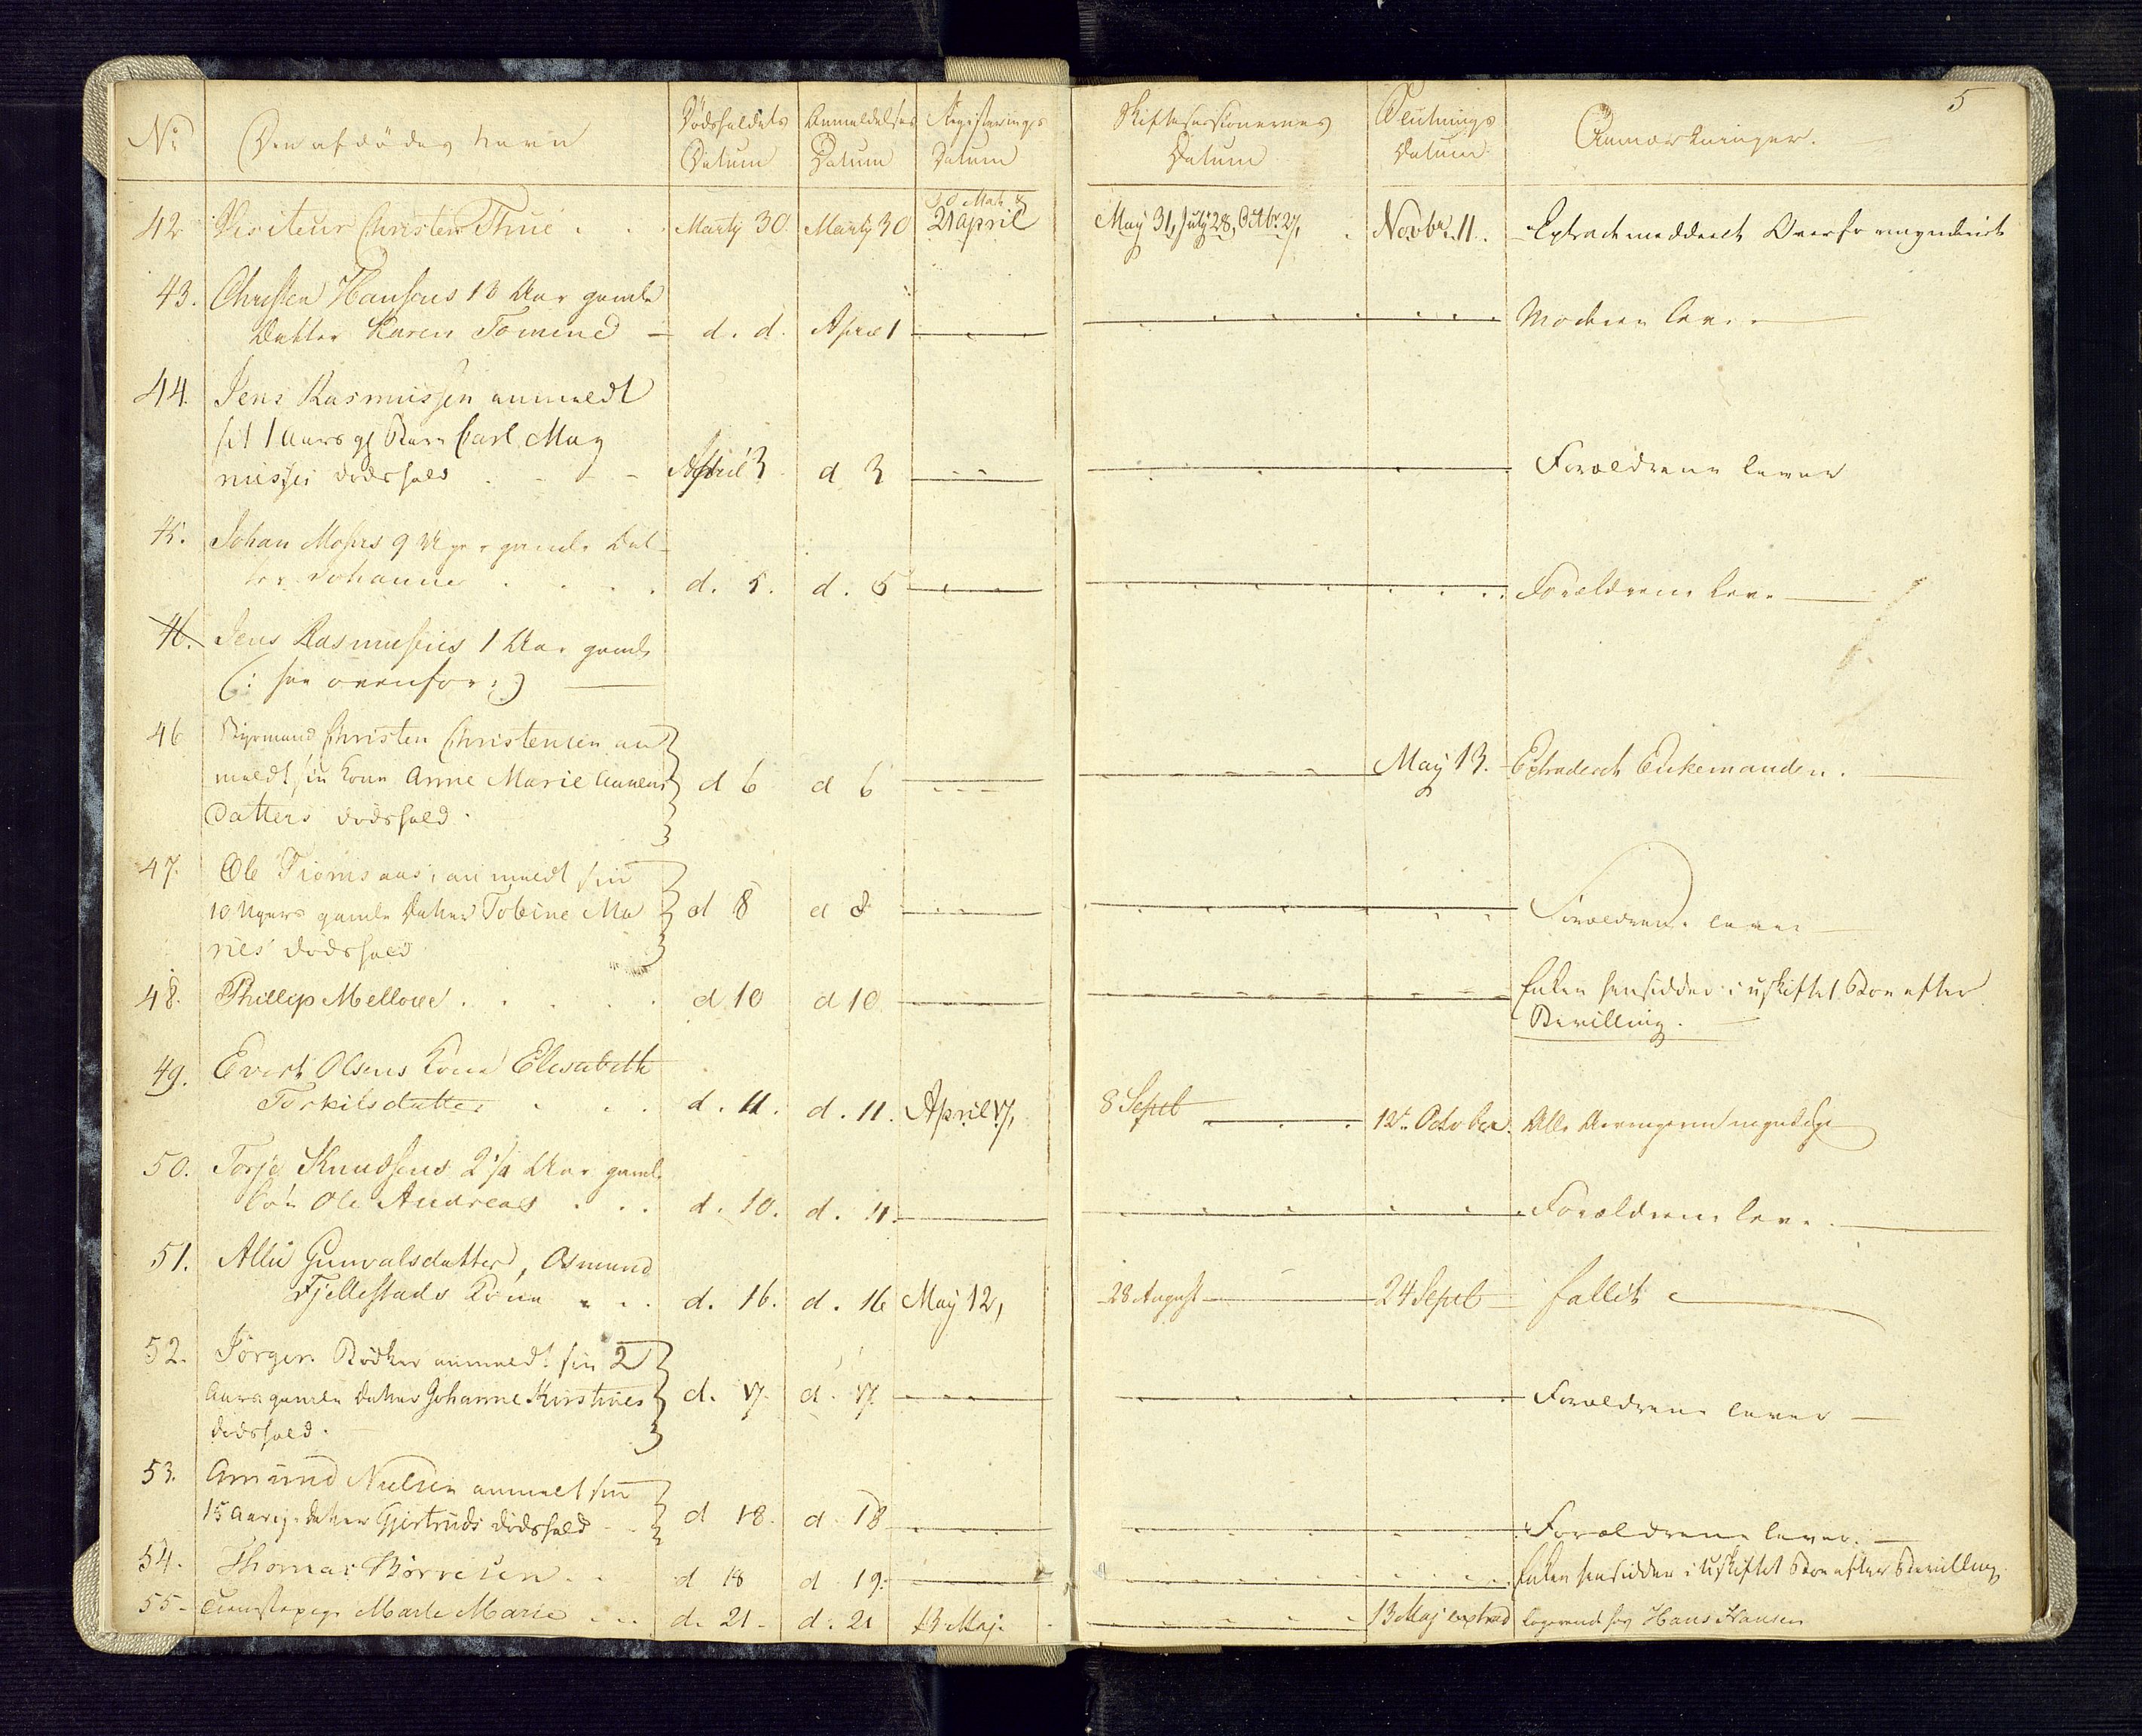 5
No Den afdødes Navn Dødsfaldets Datum Anmeldelses Datum Registerings Datum Skiftesessionernes Datum Slutnings Datum Anmærkninger.
42 Visiteur Christen Thue Marty 30. Marty 30 30 Mart & 21 april May 31, July 28, Octbr. 27, Novbr. 11. Extrademeddeelt Overformynderiet
43. Christen Hansens 13 Aar gamle
Datter Karen Tomine d. d. April 1 Moderen lever
44. Jens Rasmussen anmeldt
sit 1 Aars gl Barn Carl Mag
nusses dødsfald April 3 d 3 Forældrene lever
45. Johan Mohrs 9 Uger gamle Dat
ter Johanne d. 5. d. 5 Forældrene leve
46. Jens Rasmusens 1 Aar gamle
(: see ovenfor :)
46 Byemand Christen Christensen an
meldt sin Kone Anne Marie
datters dødsfald. d 6 d 6 May 13. Extraderet Enkemanden.
47. Ole anmeldt sin
10 Ugers gamle Datter Tobine Ma
ries dødsfald d 8 d 8 Forældrene lever
48. Phillip Mellove d 10 d 10 Enken hensidder i uskiftet Boe efter
Bevilling.
49. Evert Olsens Kone Elisabeth
Torkilsdatter d. 11. d. 11. April 17, 8 Septb 12te October. Alle Arvingerne myndige
50. Torje Knudsens 2 1/4 Aar gamle
Søn Ole Andreas d. 10. d. 11. Forældrene leve.
51. Allie Gunvalsdatter, Osmund
Fjellestads Kone d. 16. d. 16 May 12, 28 August 24 Septb fallit
52. Jørgen Bødker anmeldt sin 2
Aars gamle Datter Johanne Kirstines
dødsfald. d. 17. d. 17. Forældrene lever
53. Amund Nielsen anmelt sin
15 Aarig Datter Gjertruds dødsfald d 18. d 18 Forældrene lever.
54. Thomas Børresen d 18 d 19. Enken hensidder i Uskiftet Boe efter Bevilling.
55. Tieneste pige Marte Marie d. 21. d. 21 13 Maj. 13 Maj extrad logerende hos Hans Hansen